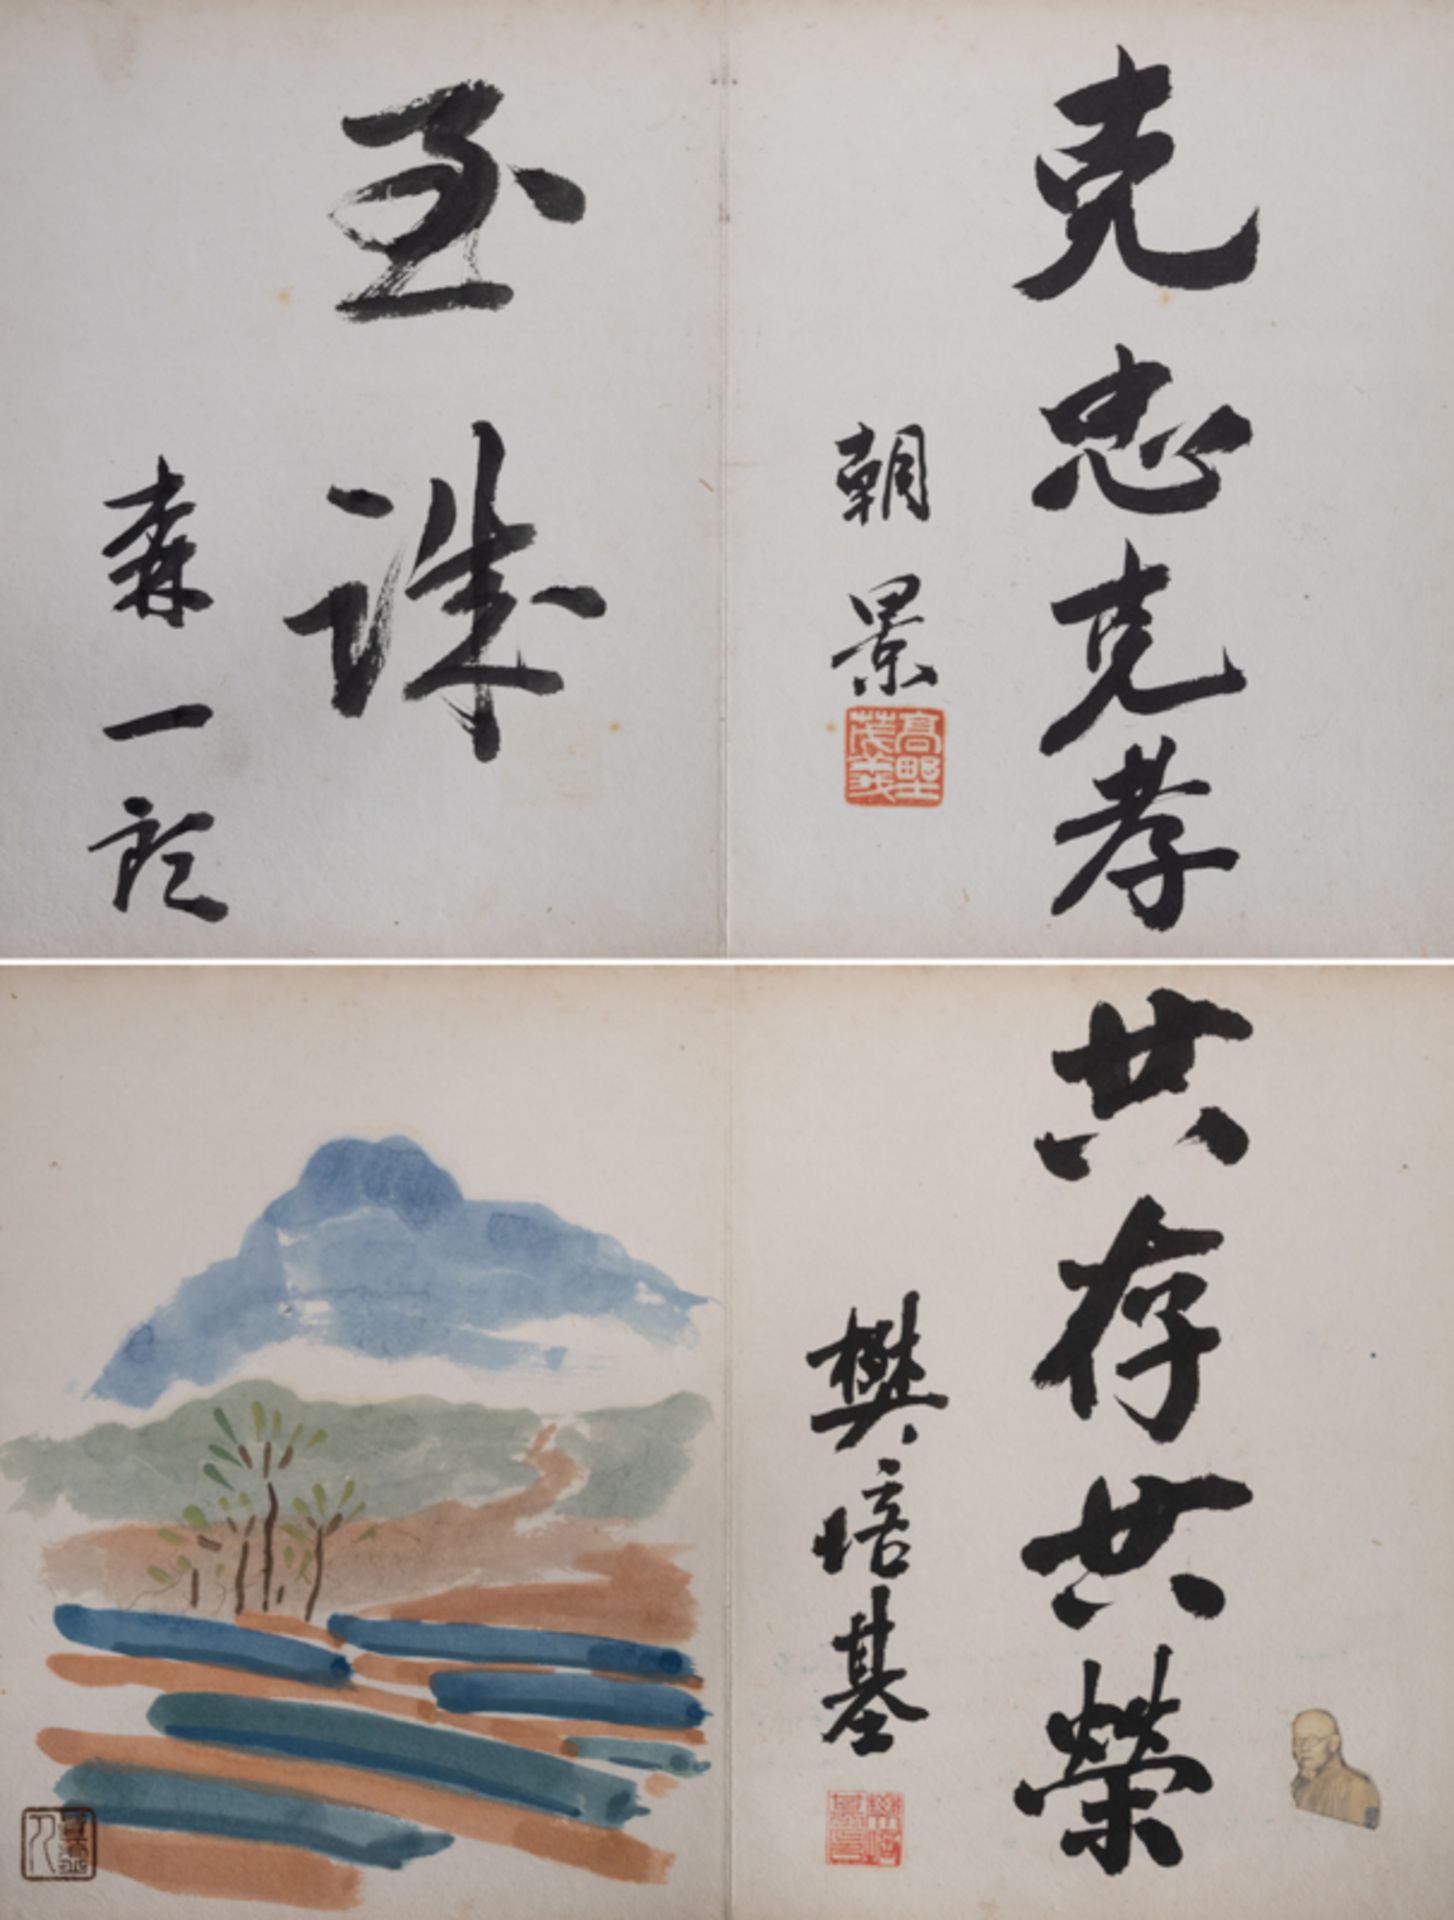 克忠克孝
朝景
高野茂義
至誠
森一郎
共存共榮
樊培基